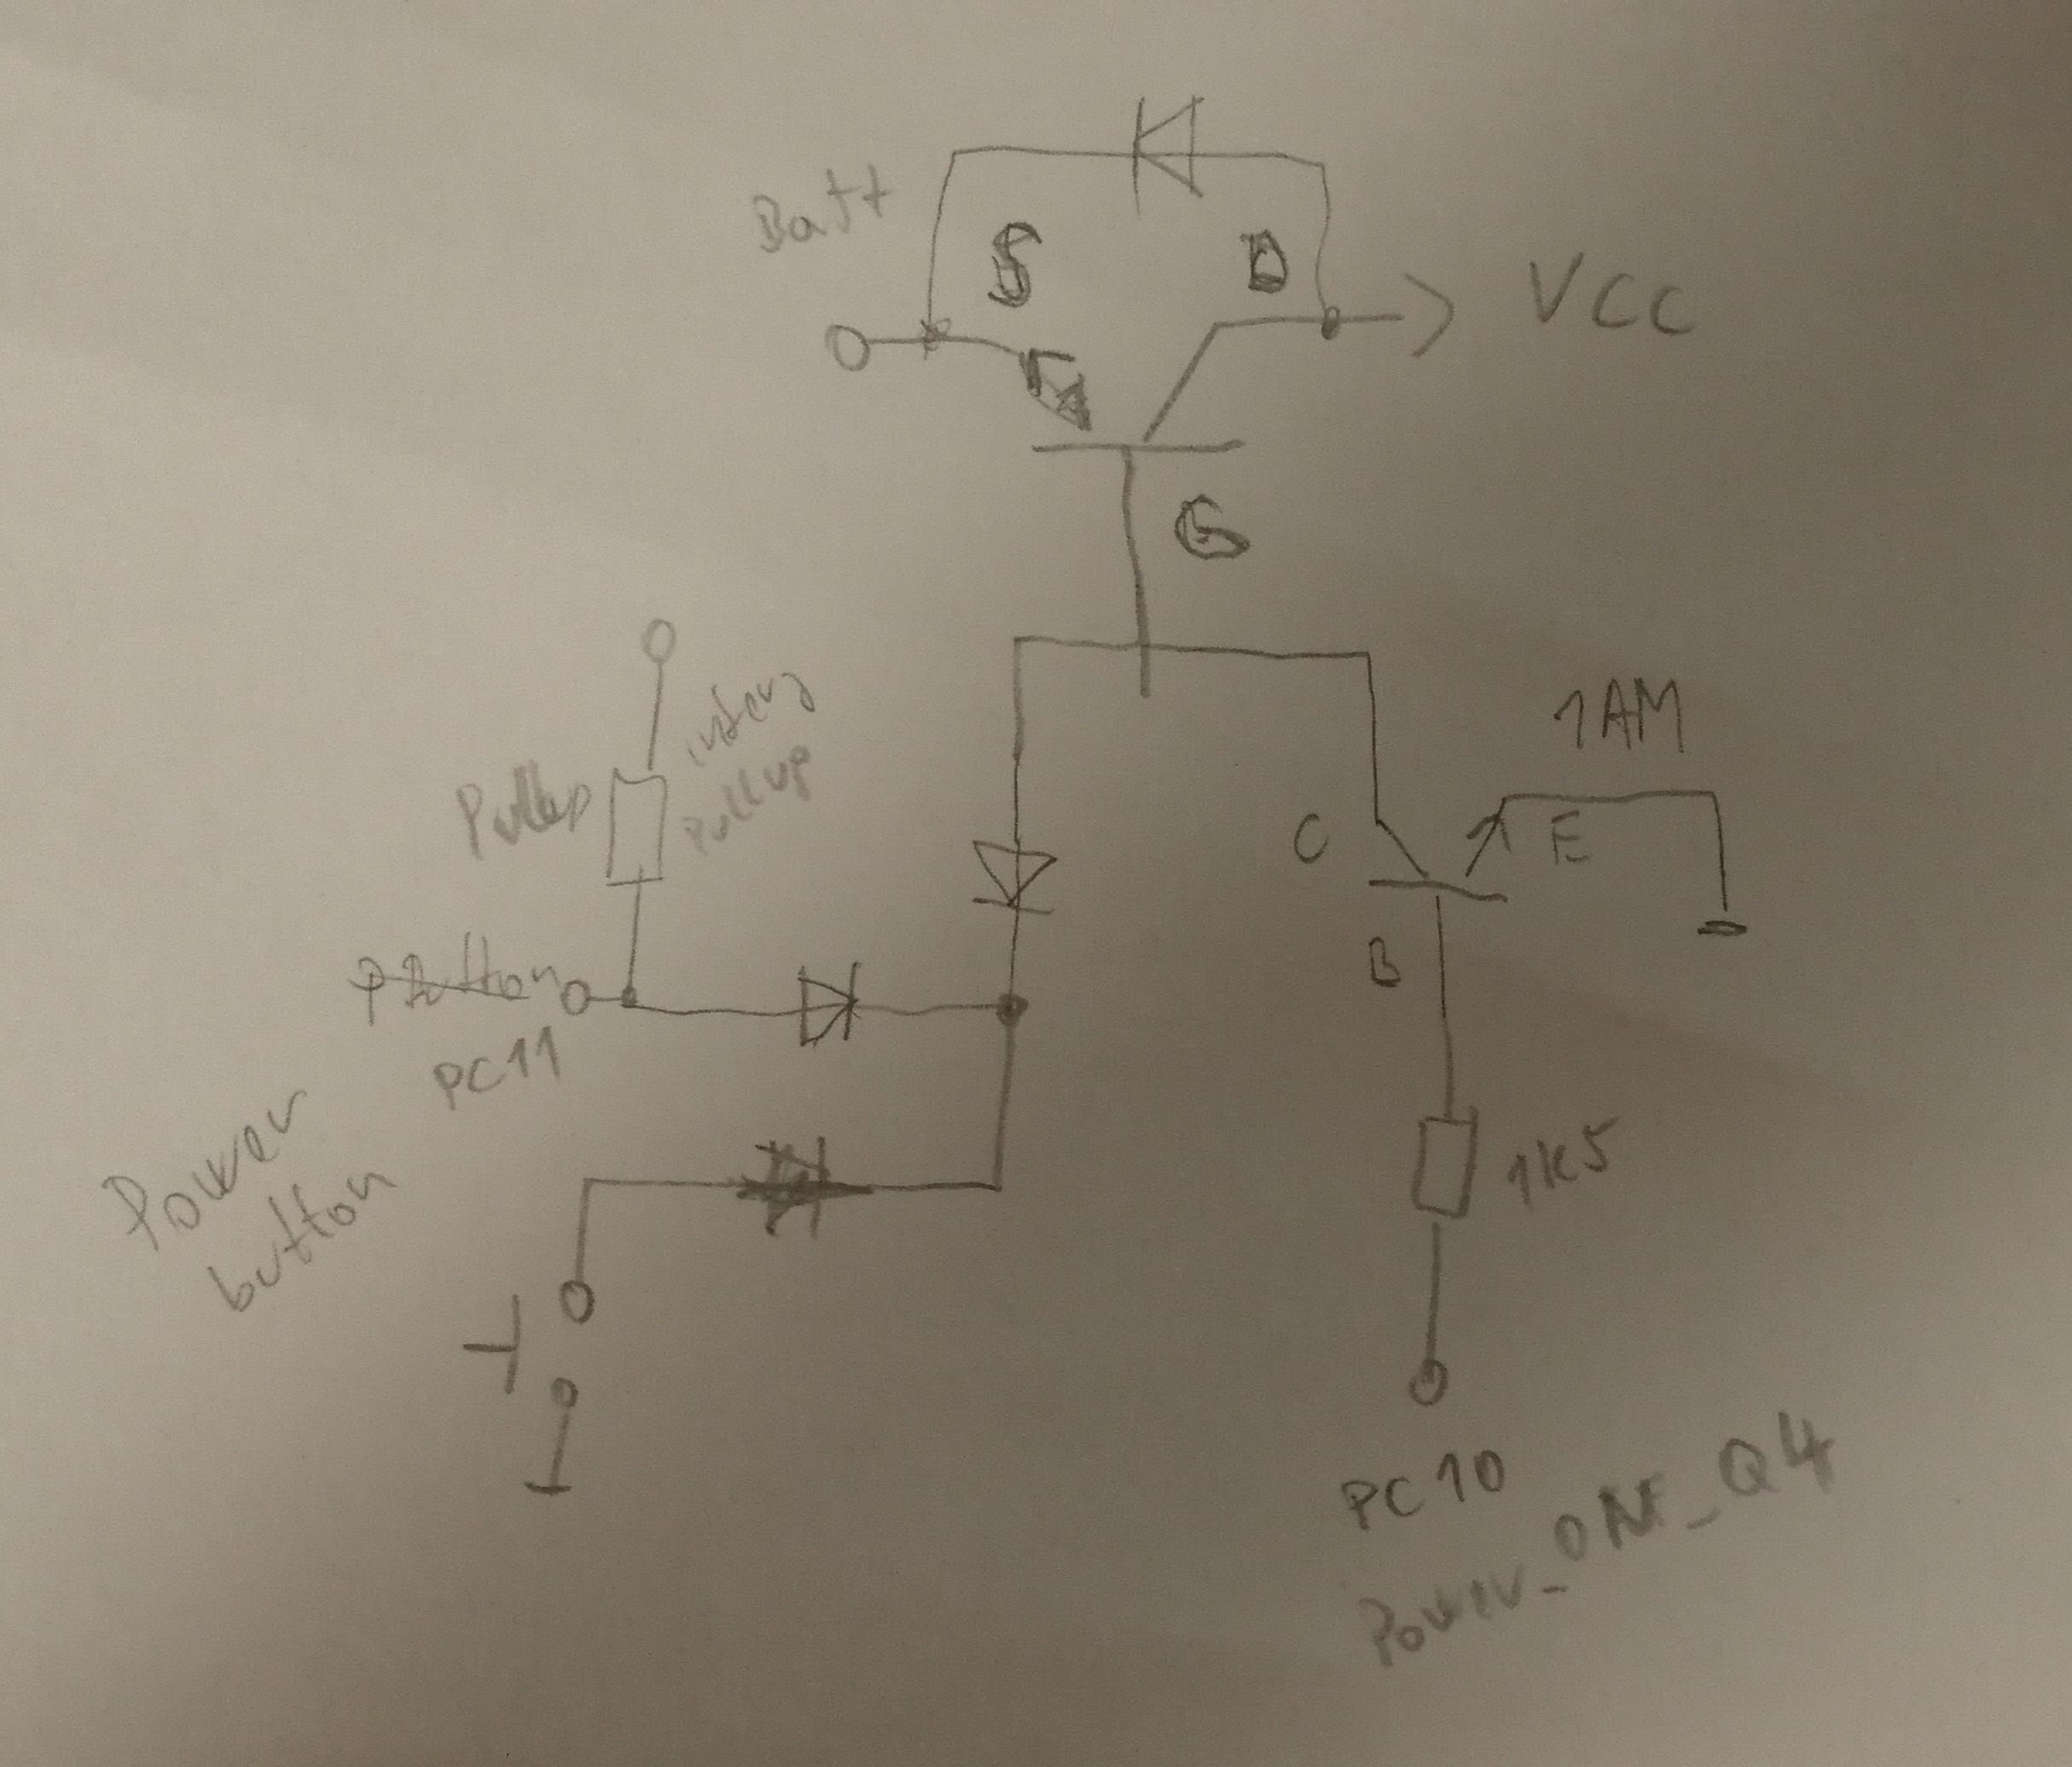 Batt
S
D
VCC
G
Pullup
intern
pullup
1AM
C
E
B
PButton
PC11
Power
button
1K5
PC10
Power_ON_Q4